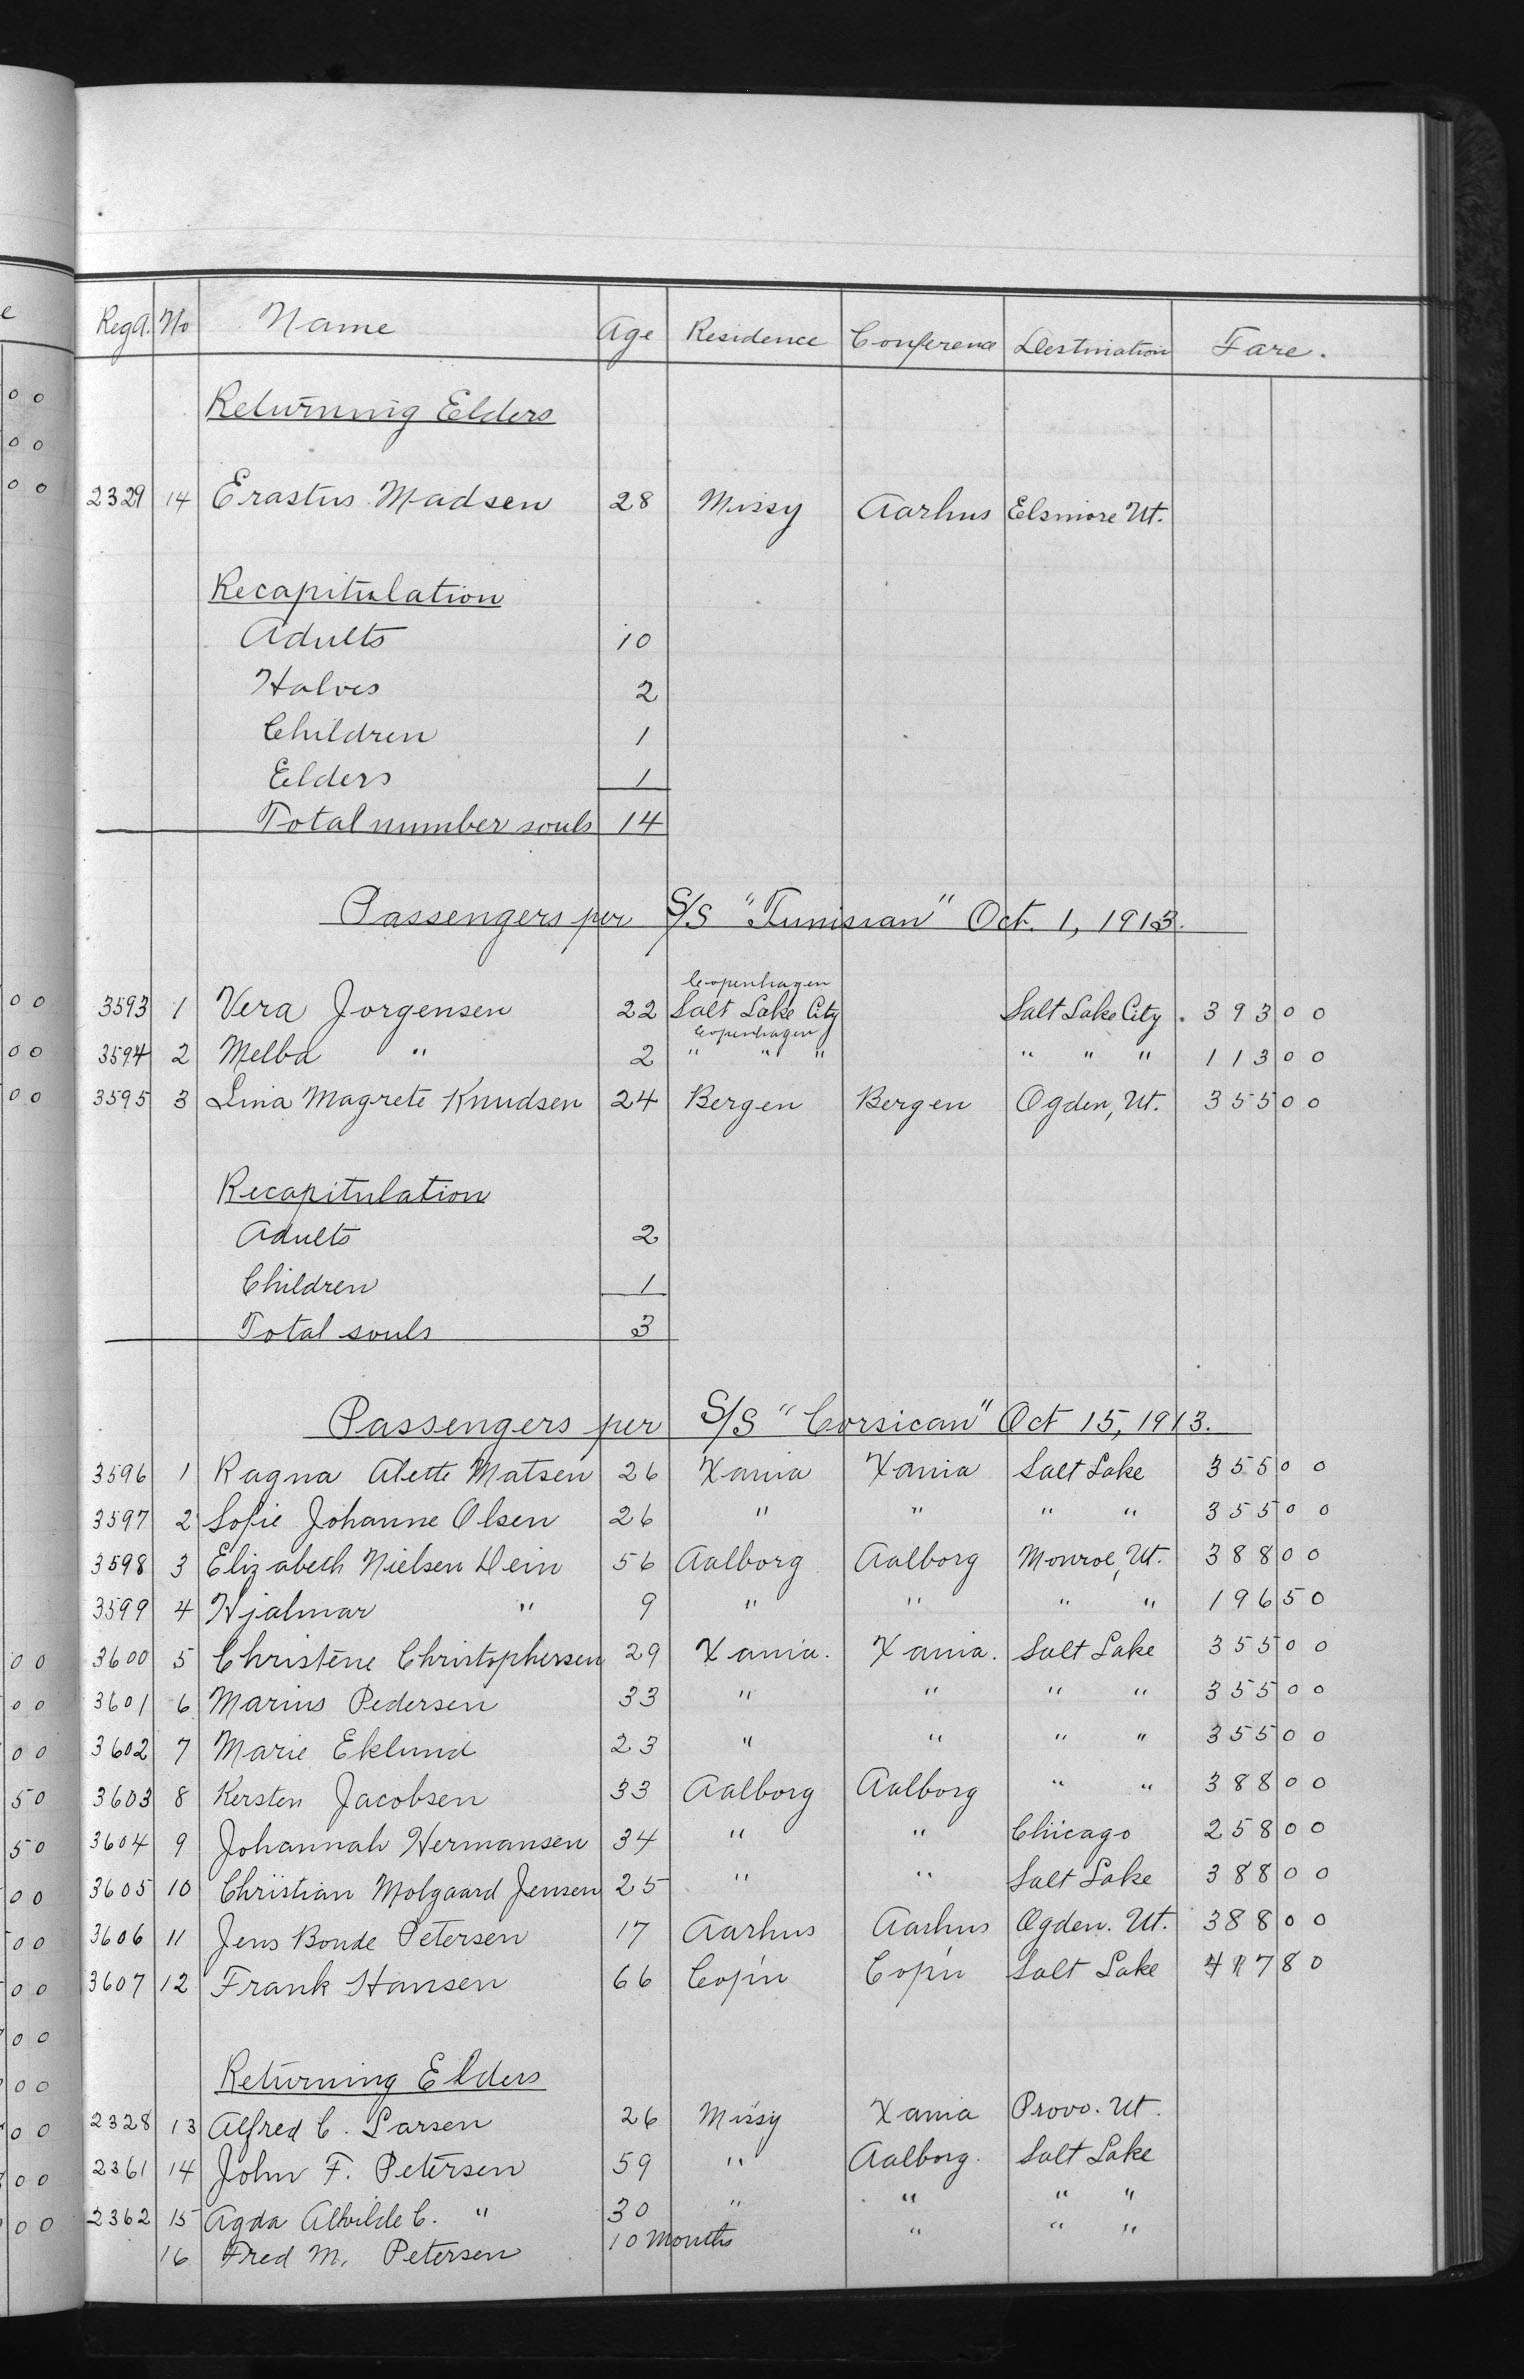 Reg'd. No Name Age Residence Conference Destination Fare.
Returning Elders
2329 14 Erastus Madsen 28 Missy Aarhus Elsinore Ut.
Recapitulation
Adults 10
Halves 2
Children 1
Elders 1
Total number souls 14
Passengers per S/S "Tunisian" Oct. 1, 1913.
Copenhagen
3593 1 Vera Jorgensen 22 Salt Lake City Salt Lake City . 393 00
Copenhagen
3594 2 Melba " 2 " " " " " " 113 00
3595 3 Lina Magrete Knudsen 24 Bergen Bergen Ogden, Ut. 355 00
Recapitulation
Adults 2
Children 1
Total souls 3
Passengers per S/S "Corsican" Oct 15, 1913.
3596 1 Ragna Alette Matsen 26 Xania Xania Salt Lake 355 00
3597 2 Sofie Johanne Olsen 26 " " " " 355 00
3598 3 Elizabeth Nielsen Hein 56 Aalborg Aalborg Monroe, Ut. 388 00
3599 4 Hjalmar " 9 " " " " 196 50
3600 5 Christene Christophersen 29 Xania. Xania. Salt Lake 355 00
3601 6 Marius Pedersen 33 " " " " 355 00
3602 7 Marie Eklund 23 " " " " 355 00
3603 8 Kersten Jacobsen 33 Aalborg Aalborg " " 388 00
3604 9 Johannah Hermansen 34 " " Chicago 258 00
3605 10 Christian Molgaard Jensen 25 " " Salt Lake 388 00
3606 11 Jens Bonde Petersen 17 Aarhus Aarhus Ogden. Ut. 388 00
3607 12 Frank Hansen 66 Cop'n Cop'n Salt Lake 80
Returning Elders
2328 13 Alfred C. Larsen 26 Missy Xania Provo. Ut.
2361 14 John F. Petersen 59 " Aalborg. Salt Lake
2362 15 Agda Alhilde C. " 30 " " " "
16 Fred M. Petersen 10 months " " "